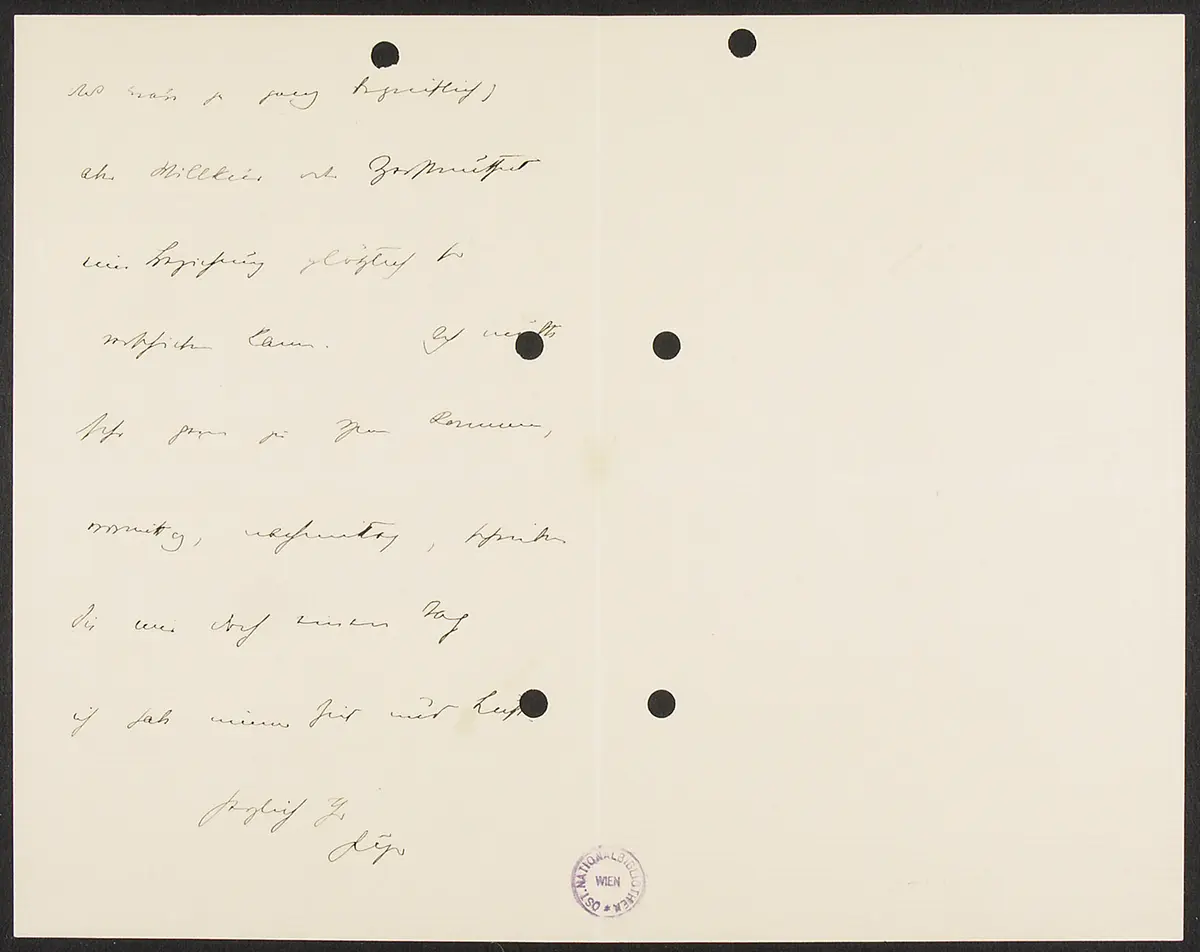 das wäre ja ganz begreiflich,
aber Willkür oder Zerstreutheit
eine Beziehung plötzlich so
kann. Ich möchte
sehr gerne zu Ihnen kommen,
vormittag, nachmittag, schreiben
Sie mir doch einen Tag
ich habe immer Zeit und Lust.
Herzlich Ihr
ÖST. NATIONALBIBLIOTHEK
WIEN